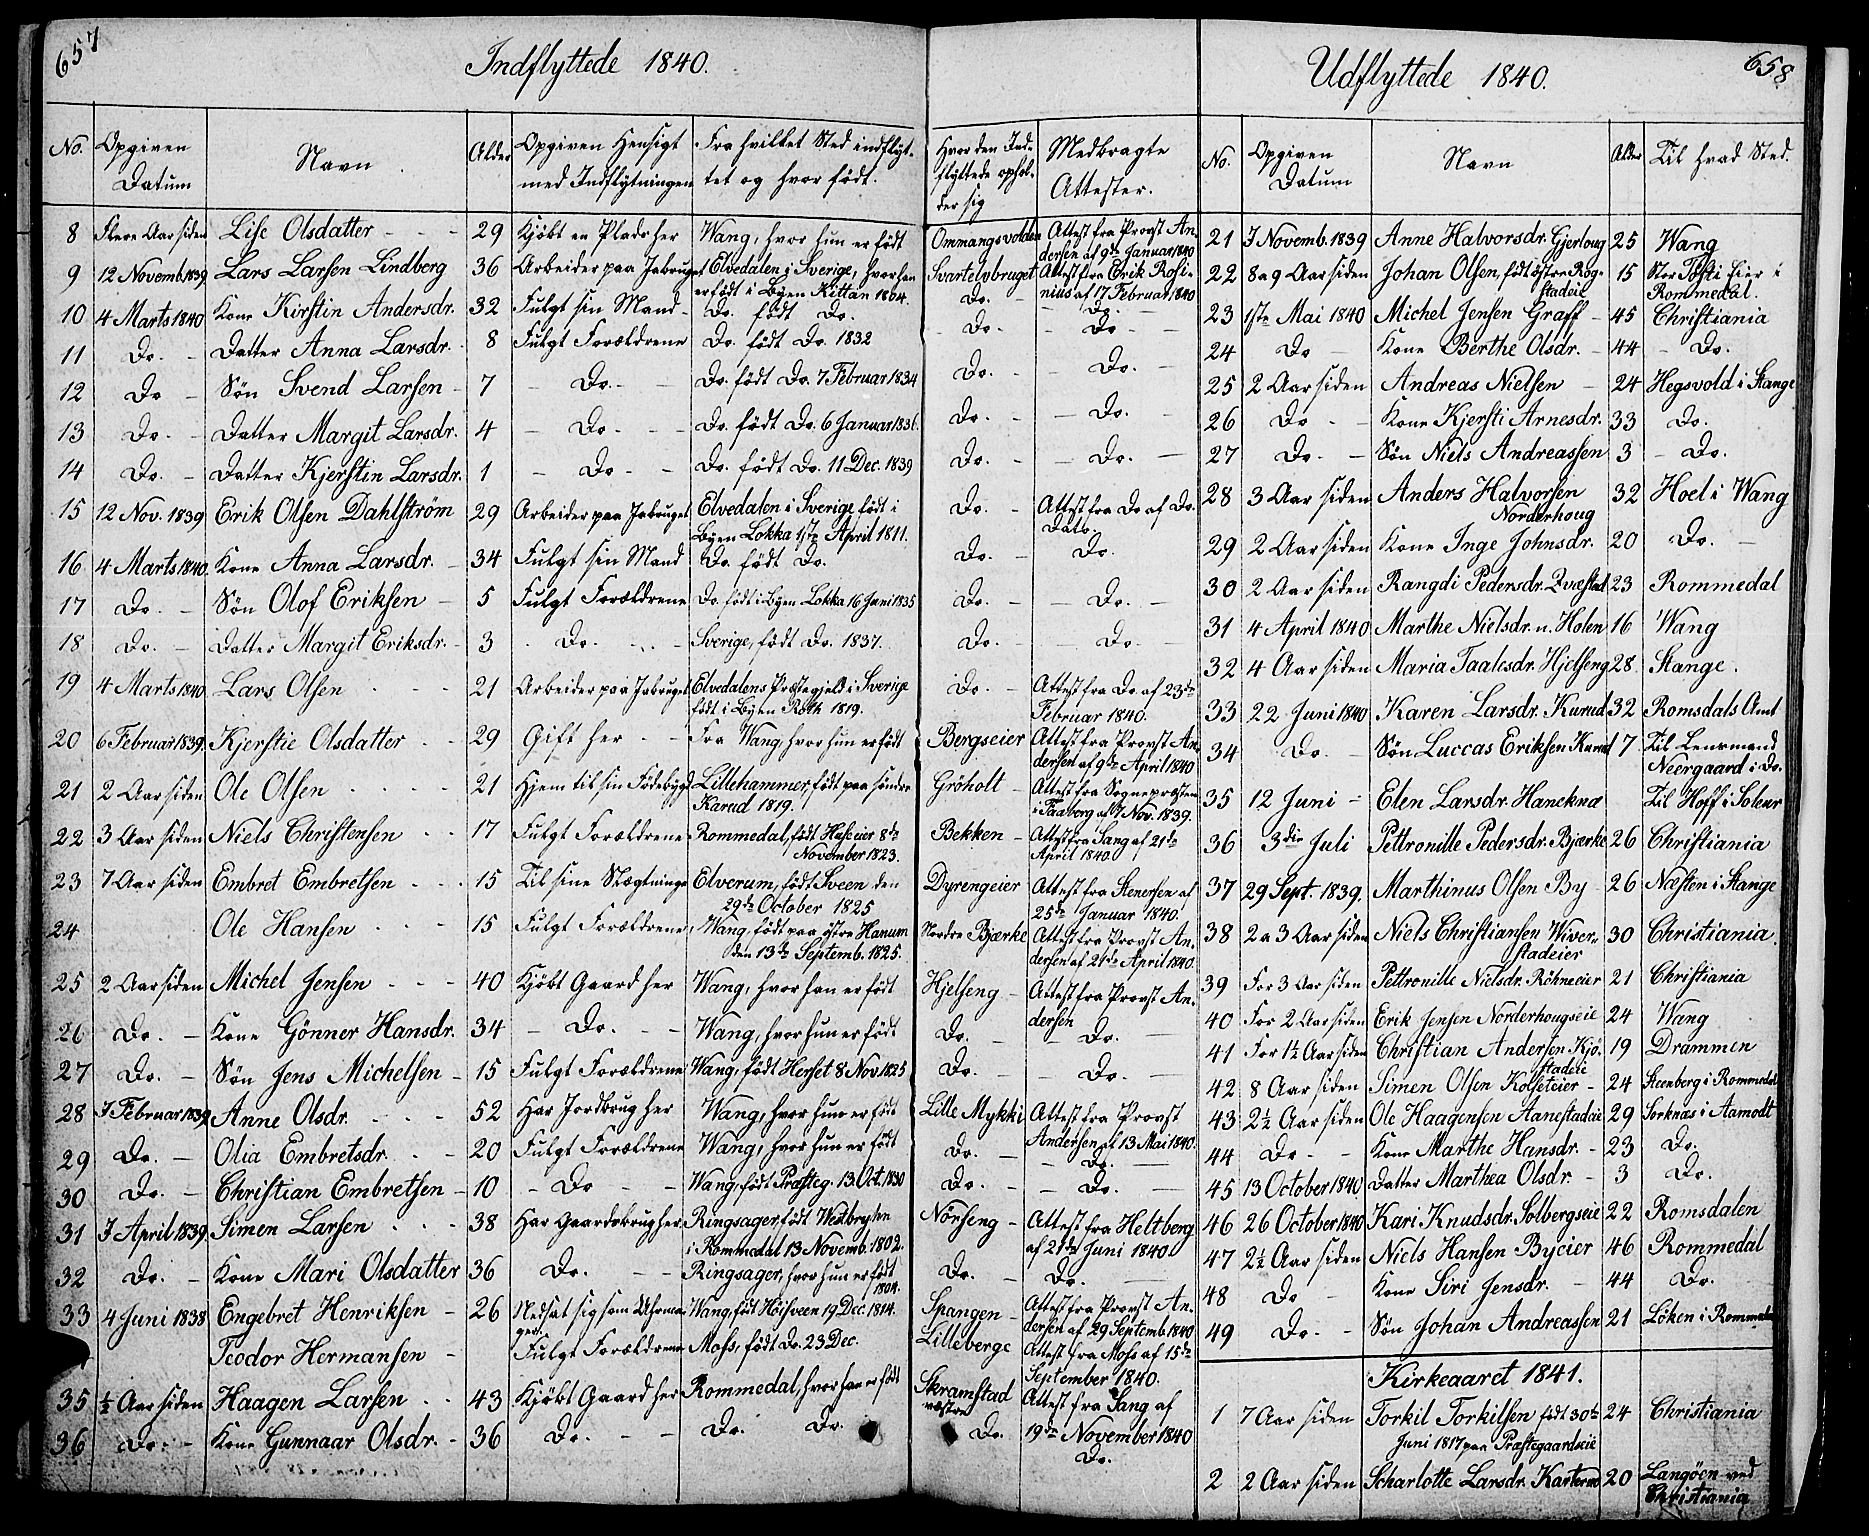 657
Indflyttede 1840.
No. Opgiven Datum Navn Alder Opgiven Hensigt med Indflytningen Fra hvilket Sted indflyttet og hvor født. Hvor den Indflyttede opholder sig Medbragte Attester.
8 Flere Aar siden Lise Olsdatter - - - 29 Kjöbt en Plads her Wang, hvor hun er født Ommangsvolden Attest fra Provst Andersen af 9de Januar 1840
9 12 Novemb. 1839. Lars Larsen Lindberg 36 Arbeider paa Jabruget Elvedalen i Sverige, hvor han er født i Byen Kittan 1804. Svartelvbruget Attest fra Erik Rosinius af 17 Februar 1840
10 4 Marts 1840 Kone Kirstin Andersdr. 32 Fulgt sin Mand - Do. født Do. Do. - Do.
11 Do. - Datter Anna Larsdr. 8 Fulgt Forældrene Do. født Do. 1832 - Do. - - Do -
12 Do - Sön Svend Larsen - 7 - Do. - Do. født Do. 7 Februar 1834 Do. - - Do. -
13 Do. - Datter Margit Larsdr. 4 - Do. - Do. født Do. 6 Januar 1836. Do. - - Do. -
14 Do. - Datter Kjerstin Larsdr. 1 - Do - - Do. født Do. 11 Dec. 1839 Do. - - Do. -
15 12 Nov. 1839 Erik Olsen Dahlström 29 Arbeider paa Jabruget Elvedalen i Sverige, født i Byen Lokka 1ste April 1811. Do. - Attest fra Do af Do. Dato.
16 4 Marts 1840. Kone Anna Larsdr. - 34 Fulgt sin Mand Do. født Do. Do. - Do.
17 Do. - Sön Olof Eriksen - 5 Fulgt Forældrene Do. født i Byen Lokka 16 Juni 1835 Do. - - Do. -
18 Do. - Datter Margit Eriksdr. - 3 - Do. - - Sverige, født Do. 1837. Do. - - Do.
19 4 Marts 1840. Lars Olsen - - - 21 Arbeider paa Jabruget Elvedalens Præstegjeld i Sverige født i Byen Roth 1819. Do. - Attest fra Do af 23de Februar 1840.
20 6 Februar 1839. Kjerstie Olsdatter - - 29 Gift her - - Fra Wang, hvor hun er født Bergseier Attest fra Provst Andersen af 9de April 1840
21 2 Aar siden Ole Olsen - - - 21 Hjem til sin Fødebygd Lillehammer, født paa søndre Karud 1819. Gröholt - Attest fra Sognepræsten i Faaberg af 7 Nov. 1839.
22 3 Aar siden Niels Christensen - - 17 Fulgt Forældrene Rommedal, født Haseeier 8de November 1823. Bekken - Attest fra Sang af 21de April 1840.
23 7 Aar siden Embret Embretsen - - - 15 Til sine Slægtninge Elverum, født Sveen den 29de October 1825 Dyrengeier Attest fra Stenersen af 25de Januar 1840.
24 Ole Hansen - - - 15 Fulgt Forældrene Wang, født paa östre Hanum den 13de Septemb. 1825. Nordre Bjærke Attest fra Provst Andersen af 21de April 1840.
25 2 Aar siden Michel Jensen - - - 40 Kjöbt Gaard her Wang, hvor han er født Hjelseng - Attest fra Provst Andersen
26 Do. - Kone Gönner Hansdr. 34 - Do. - - Wang, hvor hun er født Do. - - Do. -
27 Do. - Sön Jens Michelsen - 15 Fulgt Forældrene Wang, født Herset 8 Nov. 1825 Do. - - Do. -
28 7 Februar 1839 Anne Olsdr. - - - 52 Har Jordbrug her Wang, hvor hun er født Lille Mykki Attest fra Provst Andersen af 13 Mai 1840.
29 Do. - Olia Embretsdr. - - 20 Fulgt Forældrene Wang, hvor hun er født Do. - - Do. -
30 Do. - Christian Embretsen - 10 - Do - Wang, født Præsteg. 13 Oct. 1830 Do. - - Do. -
31 7 April 1839. Simen Larsen - - - 38 Har Gaardsbrug her Ringsager, født Westbryhn i Rommedal 13 Novemb. 1802. Nörseng - Attest fra Heltberg af 21de Juni 1840
32 Do. - Kone Mari Olsdatter 36 Do. - - Ringsager, hvor hun er født 1804. Do. - Do. -
33 4 Juni 1838 Engebret Henriksen - 26 Nedsat sig som Uhrmager. Wang, født Höisveen 19 Dec. 1814. Spangen - Attest fra Provst Andersen af 29 Septemb. 1840
Teodor Hermansen - Fulgt Forældrene Moss, født Do. 23 Dec. Lilleberge Attest fra Moss af 15de September 1840.
35 ½ Aar siden Haagen Larsen - - 43 Kjöbt Gaard her Rommedal, hvor han er født Skramstad vestre Attest fra Sang af 19de November 1840
36 Do. - Kone Gunnaar Olsdr. - 36 Do. - - Do. Do. Do. Do.
658
Udflyttede 1840.
No. Opgiven Datum Navn Alder Til hvad Sted.
21 7 Novemb. 1839 Anne Halvorsdr. Gjerloug 25 Wang
22 8 a 9 Aar siden Johan Olsen, født östre Rogstadeie 15 Stor Tosti Eier i Rommedal.
23 1ste Mai 1840 Michel Jensen Graff - 45 Christiania
24 Do - Kone Berthe Olsdr. - 44 - Do.
25 2 Aar siden Andreas Nielsen - 24 Hegsvold i Stange
26 Do - - Kone Kjersti Arnesdr. 33 Do.
27 Do. - Sön Niels Andreassen 3 - Do.
28 3 Aar siden Anders Halvorsen Norderhoug 32 Hoel i Wang
29 2 Aar siden Kone Inge Johnsdr. 20 Do. -
30 2 Aar siden Rangdi Pedersdr. Qvæstad 23 Rommedal
31 4 April 1840 Marthe Nielsdr. n. Holen 16 Wang
32 4 Aar siden Maria Taalesdr. Hjelseng 28 Stange.
33 22 Juni 1840 Karen Larsdr. Kurud 32 Romsdals Amt
34 Do. - Sön Luccas Eriksen Kurud 7 Til Lensmand Neergaard i Do.
35 12 Juni - Elen Larsdr. Hanekna Til Hoff i Soleur
36 3die Juli Pettronille Pedersdr. Bjærke 26 Christiania
37 29 Sept. 1839. Marthinus Olsen By - 26 Næsten i Stange
38 2 a 3 Aar siden Niels Christiansen Wiverstadeier 30 Christiania.
39 For 3 Aar siden Pettronille Nielsdr. Röbneeier 21 Christiania
40 For 2 Aar siden Erik Jensen Norderhougseie 24 Wang
41 For 1½ Aar siden Christian Andersen Kjöstadeie 19 Drammen
42 8 Aar siden Simen Olsen Kolseteier - 24 Steenberg i Rommedal
43 2½ Aar siden Ole Haagensen Aanestadeie 29 Sorknæs i Aamodt
44 Do - Kone Marthe Hansdr. - 23 Do.
45 13 October 1840 Datter Marthea Olsdr. - 3 Do.
46 26 October 1840 Kari Knudsdr. Solbergseie 22 Romsdalen
47 2½ Aar siden Niels Hansen Bycier 46 Rommedal
48 Do - Kone Siri Jensdr. - 44 Do.
49 Do. - Sön Johan Andreassen 21 Löken i Rommedal
Kirkeaaret 1841.
1 7 Aar siden Torkil Torkilsen født 30te Juni 1817 paa Præstegaardseie 24 Christiania
2 2 Aar siden Scharlotte Larsdr. Karterud 20 Langöen ved Christiania